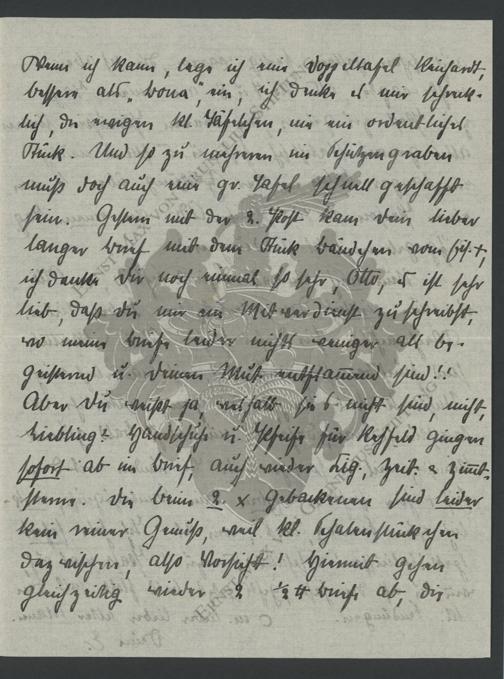 Wenn ich kann, lege ich eine Doppeltafel Reichardt,
bessere als „Dona", ein, ich denke es mir schreck-
lich, die ewigen kl. Täfelchen, nie ein ordentliches
Stück. Und so zu mehreren im Schützengraben
muß doch auch eine gr. Tafel schnell geschafft
sein. Gestern mit der 2. Post kam dein lieber
langer Brief mit dem Stück Bändchen vom
ich danke Dir noch einmal so sehr, Otto, es ist sehr
lieb, daß du mir ein Mitverdienst zuschreibst,
wo meine Briefe leider nichts weniger als be-
geisternd u. Deinen Mut entflammend sind!!
Aber Du weißt ja, weshalb sie es nicht sind, nicht,
Liebling? Handschuhe u. Pfeife für Rehfeld gingen
sofort ab im Brief, auch wieder Zig., Zeit. & Zimt-
sterne. Die beim 2. x Gebackenen sind leider
kein reiner Genuß, weil kl. Schalenstückchen
dazwischen, also Vorsicht! Hiermit gehen
gleichzeitig wieder 2 ½ ℔ Briefe ab, die